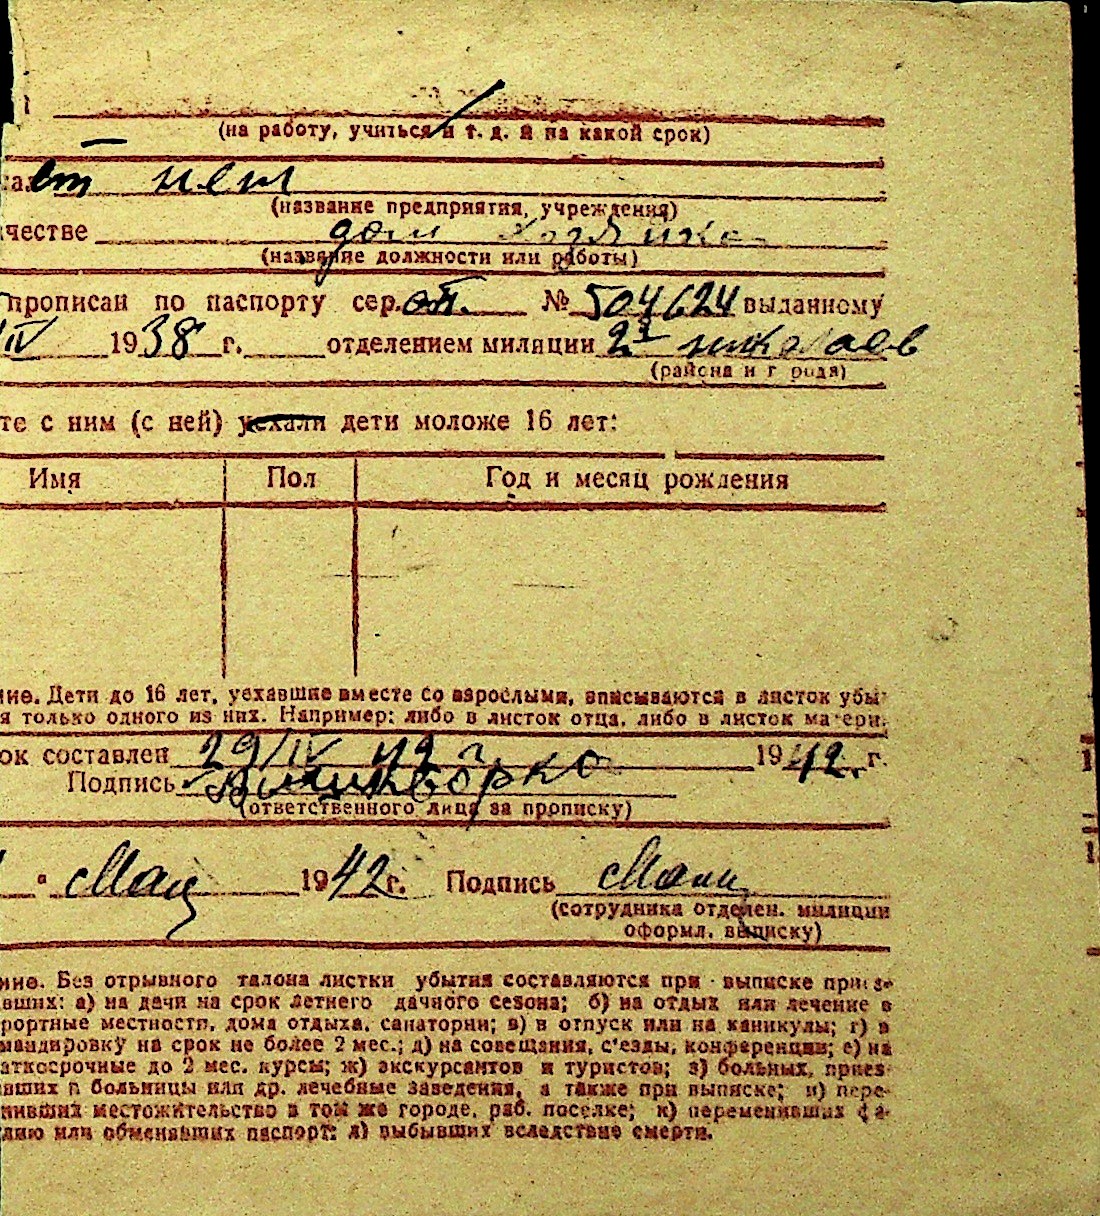 (на работу, учиться и т. д. и на какой срок)
нет
(название предприятия, учреждения)
честве дом хозяйка
(название должности или работы)
прописан по паспорту сер. № 504624 выданному
IV 1938 г. отделением милиции 2й николаев
(района и города)
те с ним (с ней) уехали дети моложе 16 лет:
Имя Пол Год и месяц рождения
ние. Дети до 16 лет, уехавшие вместе со взрослыми, вписываются в листок убы-
я только одного из них. Например: либо в листок отца, либо в листок матери.
ок составлен 29/IV 42 г. 1942 г.
Подпись
(ответственного лица за прописку)
" Мая 1942 г. Подпись
(сотрудника отделен. милиции
оформл. выписку)
ние. Без отрывного талона листки убытия составляются при выписке приез-
авших: а) на дачи на срок летнего дачного сезона; б) на отдых или лечение в
рортные местности, дома отдыха, санатории; в) в отпуск или на каникулы; г) в
мандировку на срок не более 2 мес.; д) на совещания, с'езды, конференции; е) на
аткосрочные до 2 мес. курсы; ж) экскурсантов и туристов; з) больных, приез-
авших в больницы или др. лечебные заведения, а также при выписке; и) пере-
нивших местожительство в том же городе, раб. поселке; к) переменивших фа-
лию или обменявших паспорт; л) выбывших вследствие смерти.